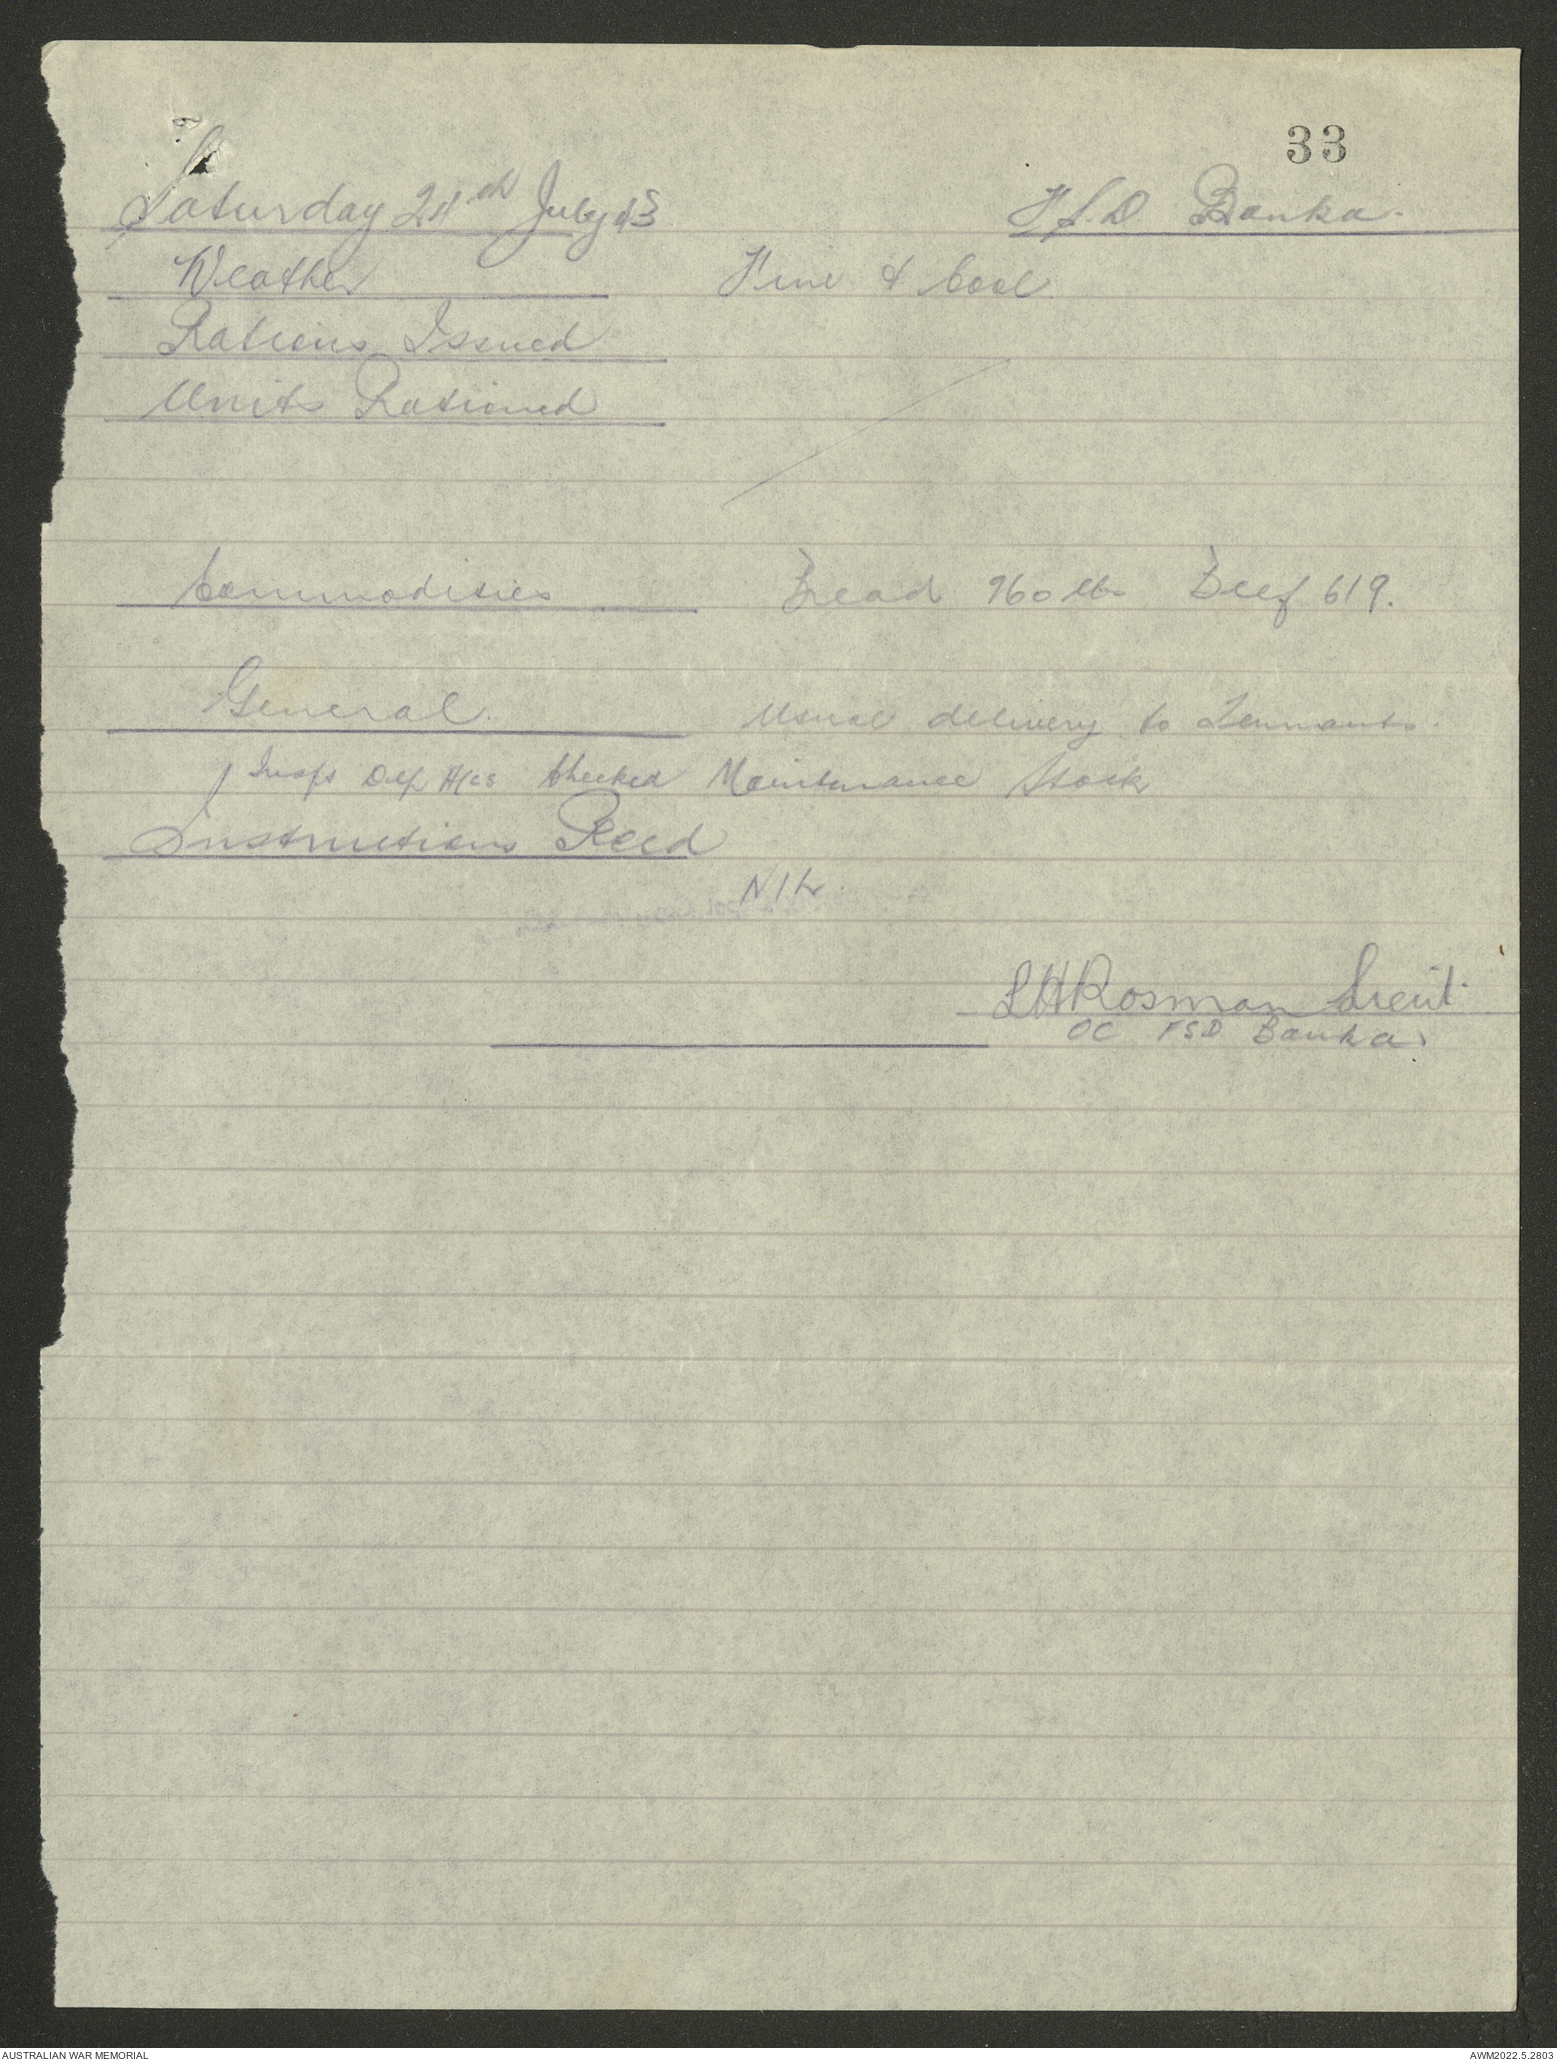 33
Saturday 24th July 43 F.S.D Banka.
Weather Fine & Cool.
Rations Issued
Units Rationed
Commodities Bread 960 lbs Beef 619.
General. Usual delivery to Tennants.
Checked Maintenance Stock
Instructions Recd
NIL.
LH Rosman Lieut.
OC FSD Banka
AUSTRALIAN WAR MEMORIAL AWM2022.5.2803